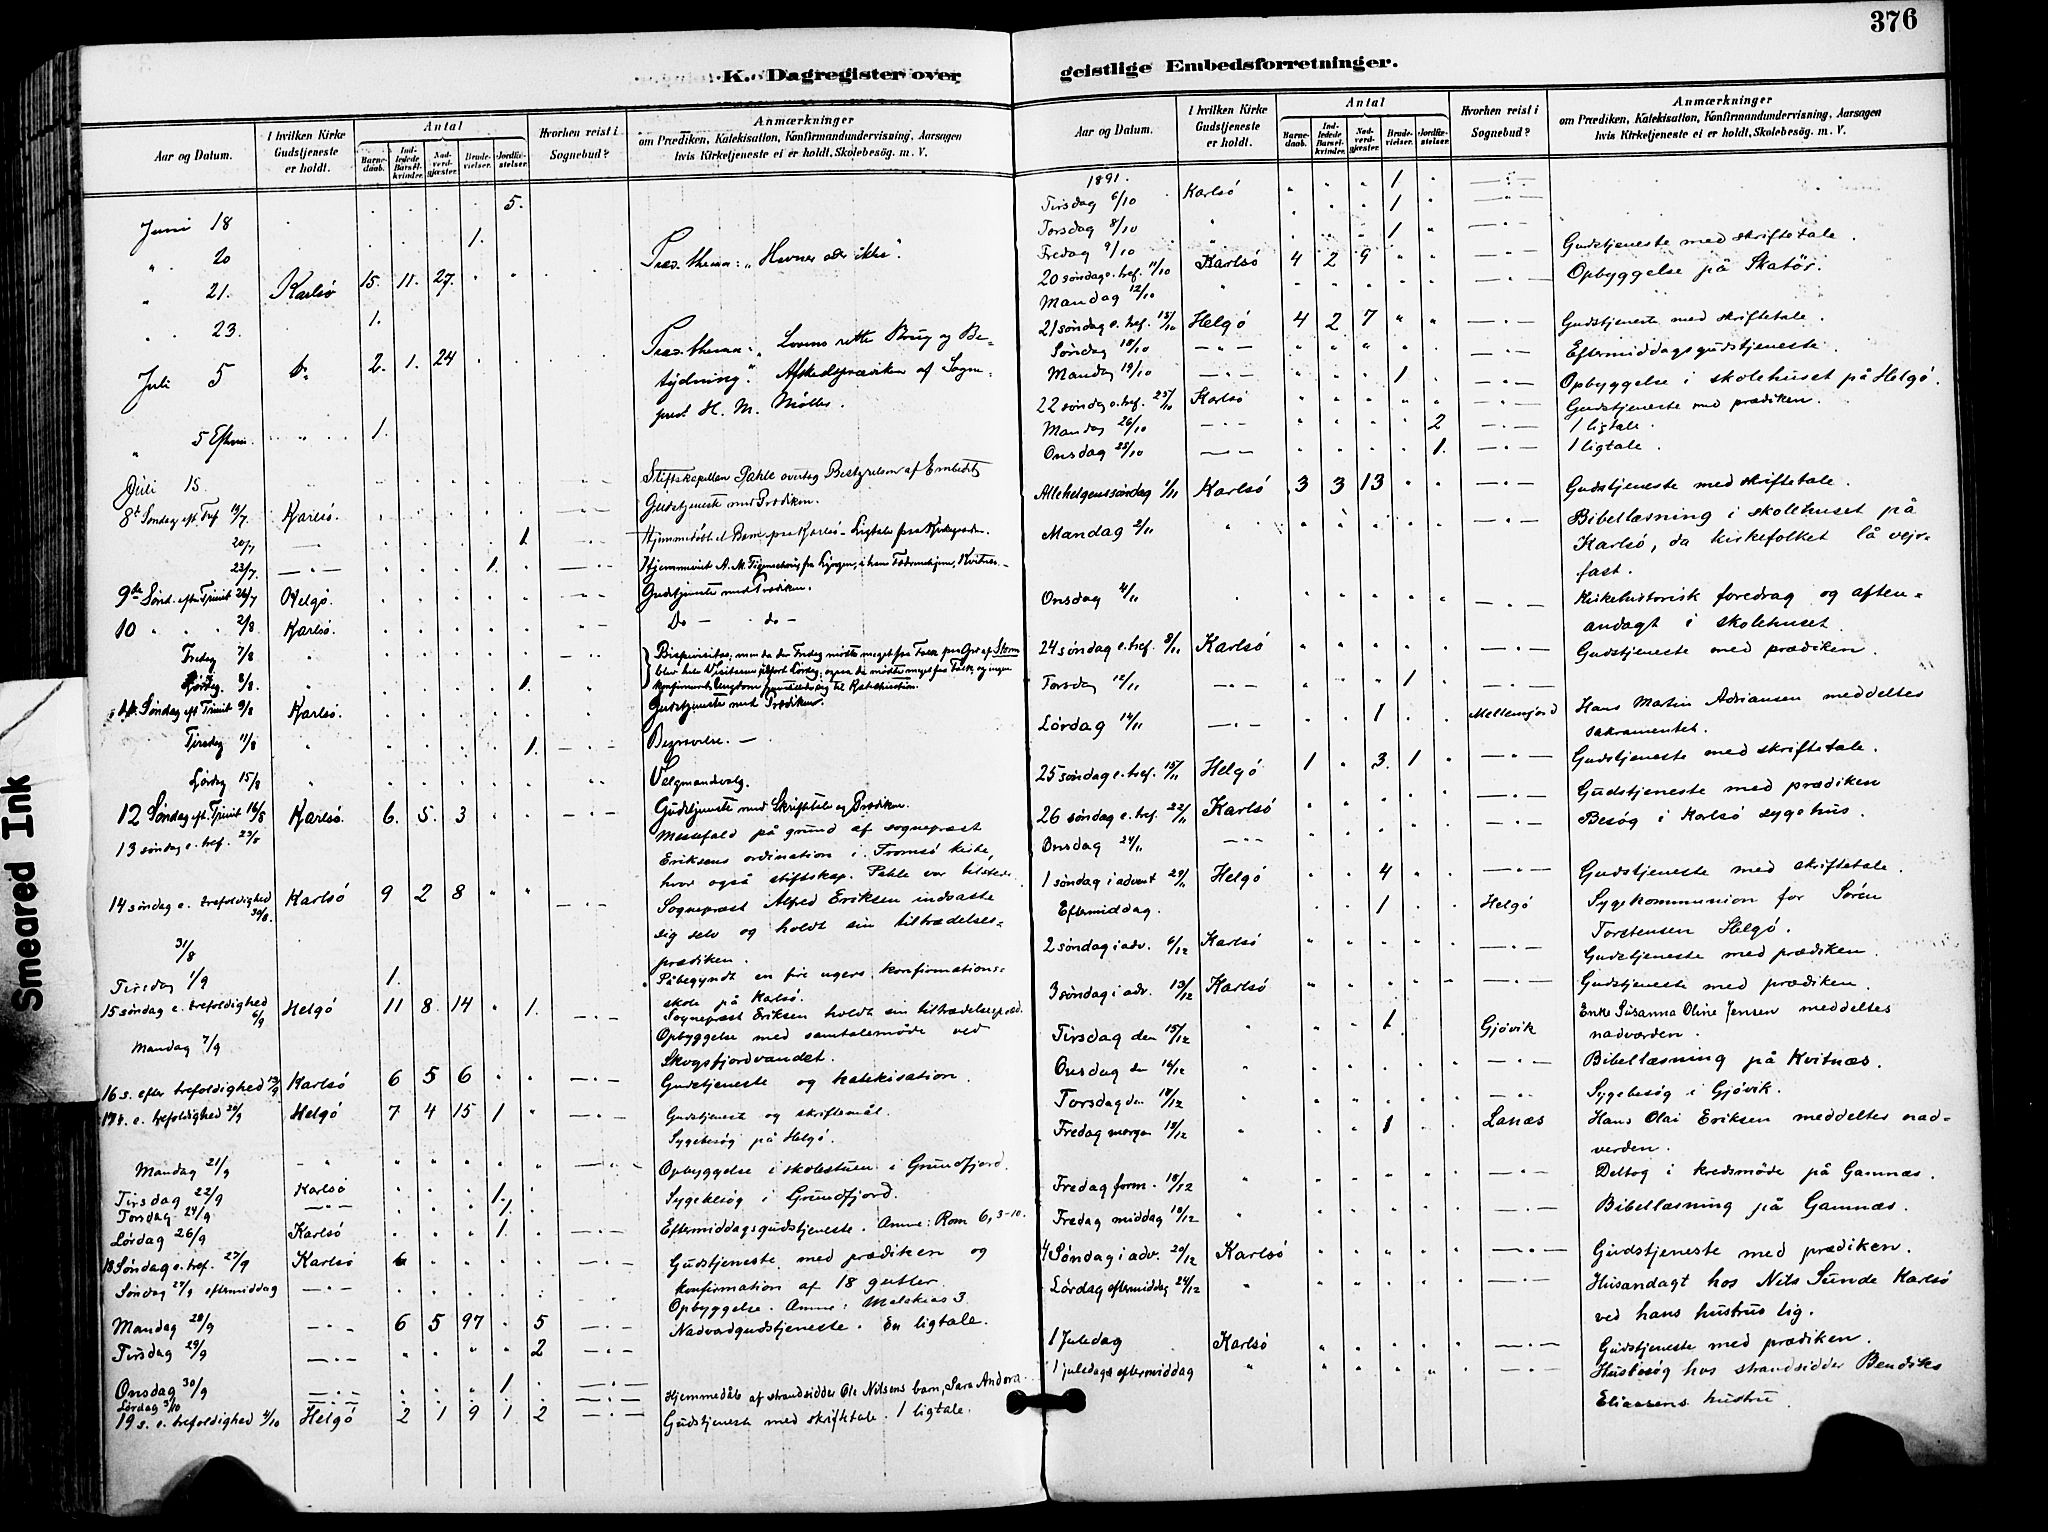 376
K. Dagregister over
geistlige Embedsforretninger.
Smeared Ink
Aar og Datum.
I hvilken Kirke Gudstjeneste er holdt.
Antal
Barnedaab.
Indledede Barselkvinder.
Nadverdgjæster.
Brudevielser.
Jordfæstelser.
Hvorhen reist i Sognebud?
Anmærkninger
om Prædiken, Katekisation, Konfirmandundervisning, Aarsagen
hvis Kirketjeneste ei er holdt, Skolebesög. m. V.
Juni 18 5.
" 20 1.
" 21. Karlsö 15. 11. 27. Præd. thema: "Hevner eder ikke".
" 23. 1.
Juli 5 do 2. 1. 24 Præd. thema: "Lovens rette Brug og Be-
tydning." Afskedsprædiken af Sogne-
prest H. M. Möller.
" 5 Efterm. " 1.
Juli 15. Stiftskapellan Pahle overtog Bestyrelsen af Embedet
8de Söndag eft. Tref. 19/7. Karlsö. Gudstjeneste med Prædiken.
20/7 1. Hjemmedöbt Barn fra Karlsö - Ligtale fra Kirkegaarden.
23/7. 1. Hjemmeviet A. M. fra Lyngen, i Kvitnæs -
9de Sönd. efter Trinit 26/7 Helgö. Gudstjeneste med Prædiken.
10 " " 2/8 Karlsö. Do - do -
Fredag 7/8 Bispevisitas; men da der Fredag mödte meget faa Folk paa Grund af Storm
Lördag. 8/8. 1. blev hele Visitasen Lördag; ogsaa da mödte meget faa Folk og ingen
konfirmeret Ungdom fremstillede sig til Katekisation.
11. Söndag eft Trinit 9/8 Karlsö. Gudstjeneste med Prædiken.
Tirsdag 11/8 " 1. Begravelse. -
Lördag 15/8 " Valgmandsvalg.
12 Söndag eft. Trinit 16/8 Karlsö. 6. 5. 3 Gudstjeneste med Skriftetale og Prædiken.
13 söndag e. tref. 23/8 Messefald på grund af sogneprest
Eriksens ordination i Tromsö kirke,
hvor også stiftskap. Pahle var tilstede.
14 söndag e. trefoldighed 30/8. Karlsö 9 2 8 Sogneprest Alfred Eriksen indsatte
sig selv og holdt sin tiltrædelses-
prædiken.
31/8 Påbegyndt en fire ugers konfirmations-
Tirsdag 1/9 1. skole på Karlsö.
15 söndag e. trefoldighed 6/9 Helgö 11 8 14 1. Sogneprest Eriksen holdt sin tiltrædelsespræd.
Mandag 7/9 Opbyggelse med samtalemöde ved
Skogsfjordvandet.
16 s. efter trefoldighed 13/9 Karlsö 6 5 6 Gudstjeneste og katekisation.
17 s. e. trefoldighed 20/9 Helgö 7 4 15 1 Gudstjenest og skriftemål.
Sygebesög på Helgö.
Mandag 21/9 Opbyggelse i skolestuen i Grundfjord.
Tirsdag 22/9 Karlsö 1. Sygebesög i Grundfjord.
Torsdag 24/9 1.
Lördag 26/9 Karlsö 1. Eftermiddagsgudstjeneste. Amne: Rom 6, 3-10.
18 Söndag e. tref. 27/9 Karlsö Gudstjeneste med prædiken og
konfirmation af 18 gutter.
Söndag 27/9 eftermiddag Opbyggelse. Amne: Malakias 3.
Mandag 28/9 6 5 97 5 Nadvardgudstjeneste. En ligtale.
Tirsdag 29/9 2
Onsdag 30/9 1
Lördag 3/10 Hjemmedåb af strandsidder Ole Nilsens barn, Sara Andora.
19 s. e. trefoldighed 4/10 Helgö 2 1 9 1 2 Gudstjeneste med skriftetale. 1 ligtale.
Aar og Datum.
I hvilken Kirke Gudstjeneste er holdt.
Antal
Barnedaab.
Indledede Barselkvinder.
Nadverdgjæster.
Brudevielser.
Jordfæstelser.
Hvorhen reist i Sognebud?
Anmærkninger
om Prædiken, Katekisation, Konfirmandundervisning, Aarsagen
hvis Kirketjeneste ei er holdt, Skolebesög. m. V.
1891.
Tirsdag 6/10 Karlsö 1
Torsdag 8/10 1
Fredag 9/10 " 1
20 söndag e. tref. 11/10 Karlsö 4 2 9 Gudstjeneste med skriftetale.
Mandag 12/10 " Opbyggelse på Skatör.
21 söndag e. tref. 18/10 Helgö 4 2 7 Gudstjeneste med skriftetale.
Söndag 18/10 Eftermiddagsgudstjeneste.
Mandag 19/10 1 Opbyggelse i skolehuset på Helgö.
22 söndag e. tref. 25/10 Karlsö Gudstjeneste med prædiken.
Mandag 26/10 2 1 ligtale.
Onsdag 28/10 1. 1 ligtale.
Allehelgenssöndag 1/11 Karlsö 3 3 13 Gudstjeneste med skriftetale.
Mandag 2/11 " Bibellæsning i skolehuset på
Karlsö, da kirkefolket lå vejr-
fast.
Onsdag 4/11 Kirkehistorisk foredrag og aften-
andagt i skolehuset.
24 söndag e. tref. 8/11 Karlsö Gudstjeneste med prædiken.
Torsdag 12/11 1
Lördag 14/11 1 Mellemfjord Hans Martin Adriansen meddeltes
sakramentet.
25 söndag e. tref. 15/11 Helgö 1 3 1 Gudstjeneste med skriftetale.
26 söndag e. tref. 22/11 Karlsö Gudstjeneste med prædiken
Onsdag 24/11 Besög i Karlsö sygehus.
1 söndag i advent 29/11 Helgö 4 Gudstjeneste med skriftetale.
Eftermiddag. 1 Helgö Sygekommunion for Sören
Torstensen Helgö.
2 söndag i adv. 6/12 Karlsö Gudstjeneste med prædiken.
3 söndag i adv. 13/12 Karlsö Gudstjeneste med prædiken.
Tirsdag den 15/12 " 1 Gjövik Enke Susanna Oline Jensen meddeltes
nadverden.
Onsdag den 16/12 " Bibellæsning på Kvitnæs.
Torsdag den 17/12 " Sygebesög i Gjövik.
Fredag morgen 18/12 " 1 Lanæs Hans Olai Eriksen meddeltes nad-
verden.
Fredag form. 18/12 " Deltog i kredsmöde på Gamnæs.
Fredag middag 18/12 " Bibellæsning på Gamnæs.
4 Söndag i adv. 20/12 Karlsö Gudstjeneste med prædiken.
Lördag eftermiddag 24/12 " Husandagt hos Nils Sunde Karlsö
ved hans hustrus lig.
1 Juledag Karlsö Gudstjeneste med prædiken.
1 juledags eftermiddag " Husbesög hos strandsidder Bendiks
Eliassens hustru.